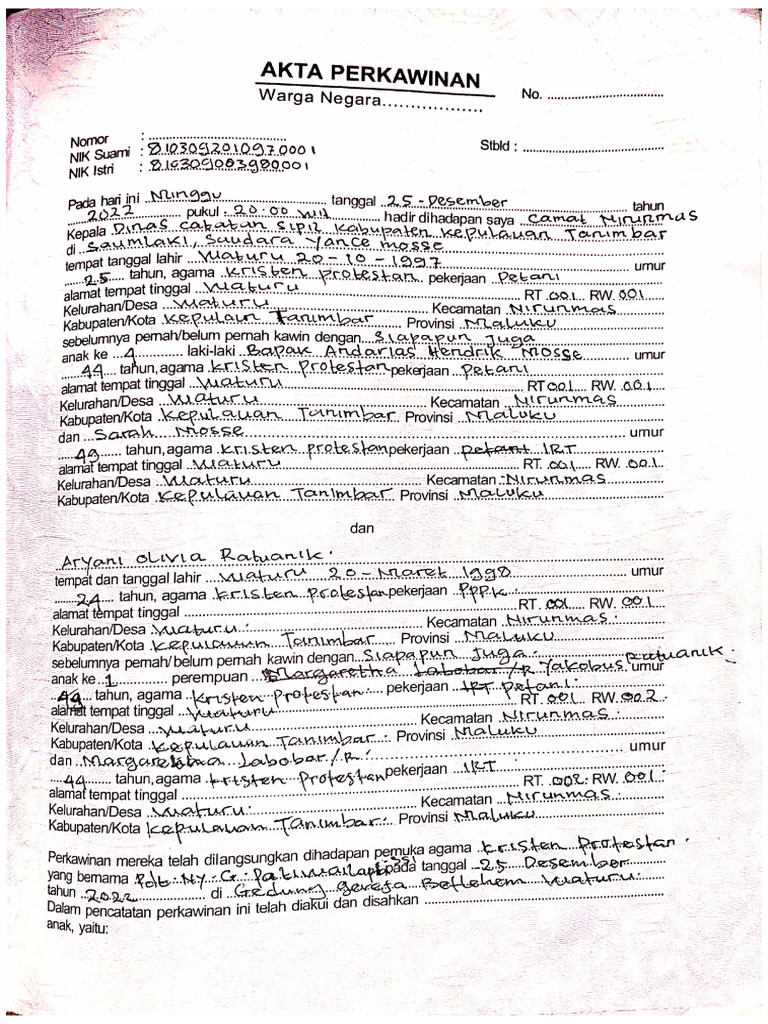 AKTA PERKAWINAN
Warga Negara..................
No. ................................
Nomor : ....................................
NIK Suami : 8103092010970001
NIK Istri : 8103096003980001
Stbld : ........................................
Pada hari ini Minggu tanggal 25 - Desember tahun
2022 pukul : 20:00 Wit hadir dihadapan saya Camat Nirunmas
Kepala Dinas Catatan Sipil Kabupaten Kepulauan Tanimbar
di Saumlaki, Saudara Yance Mosse
tempat tanggal lahir Waturu 20 - 10 - 1997 umur
25 tahun, agama Kristen Protestan pekerjaan Petani
alamat tempat tinggal Waturu RT 001 RW. 001
Kelurahan/Desa Waturu Kecamatan Nirunmas
Kabupaten/Kota Kepulaun Tanimbar Provinsi Maluku
sebelumnya pernah/belum pernah kawin dengan Siapapun Juga
anak ke 4 laki-laki Bapak Andarias Hendrik Mosse umur
44 tahun, agama Kristen Protestan pekerjaan Petani
alamat tempat tinggal Waturu RT 001 RW. 001
Kelurahan/Desa Waturu Kecamatan Nirunmas
Kabupaten/Kota Kepulauan Tanimbar Provinsi Maluku
dan Sarah Mosse umur
49 tahun, agama Kristen Protestan pekerjaan Petani IRT
alamat tempat tinggal Waturu RT. 001 RW. 001
Kelurahan/Desa Waturu Kecamatan Nirunmas
Kabupaten/Kota Kepulauan Tanimbar Provinsi Maluku
dan
Aryani Olivia Ratuanik.
tempat dan tanggal lahir Waturu 20 - Maret 1998 umur
24 tahun, agama Kristen Protestan pekerjaan PPPK
alamat tempat tinggal RT. 001 RW. 001
Kelurahan/Desa Waturu. Kecamatan Nirunmas.
Kabupaten/Kota Kepulauan Tanimbar Provinsi Maluku
sebelumnya pernah/belum pernah kawin dengan Siapapun Juga.
anak ke 1 perempuan Margaretha Labobar /R Yakobus Ratuanik. umur
49 tahun, agama Kristen Protestan. pekerjaan IRT Petani.
alamat tempat tinggal Waturu RT. 001 RW. 002
Kelurahan/Desa Waturu Kecamatan Nirunmas.
Kabupaten/Kota Kepulauan Tanimbar. Provinsi Maluku
dan Margaretha Labobar /R. umur
44 tahun, agama Kristen Protestan pekerjaan IRT
alamat tempat tinggal RT. 002. RW. 001
Kelurahan/Desa Waturu. Kecamatan Nirunmas.
Kabupaten/Kota Kepulauan Tanimbar. Provinsi Maluku
Perkawinan mereka telah dilangsungkan dihadapan pemuka agama Kristen Protestan.
yang bernama Pdt. Ny. G. pada tanggal 25 Desember
tahun 2022 di Gedung gereja Betlehem Waturu.
Dalam pencatatan perkawinan ini telah diakui dan disahkan ........................................
anak, yaitu: